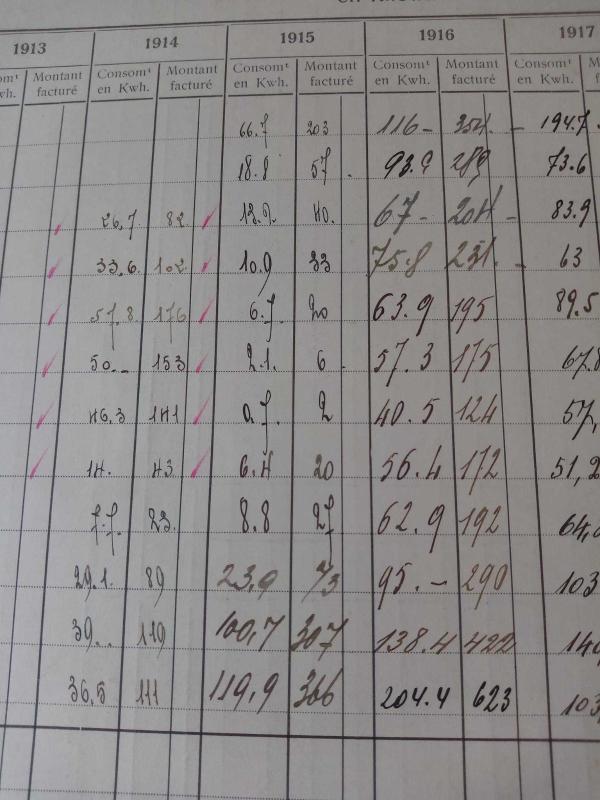 1913 1914 1915 1916 1917
Montant Consomt Montant Consomt Montant Consomt Montant Consomt
Kwh. facturé en Kwh. facturé en Kwh. facturé en Kwh. facturé en Kwh.
66.7 203 116 - 354 - 194.7
18.8 57 93.9 289 73.6
26.7 82 13.2 40. 67 - 204 - 83.9
33.6 102 10.9 33 75.8 231. - 63
57.8 176 6.7 20 63.9 195 89.5
50.- 153 2.1. 6 57.3 175 67.8
46.3 141 0.7. 2 40.5 124 57,
14. 43 6.4 20 56.4 172 51,2
7.7. 23. 8.8 27 62.9 192 64,
29.1. 89 23,9 73 95.- 290 103
39.. 119 100,7 307 138.4 422 140,
36,5 111 119,9 366 204.4 623 103,